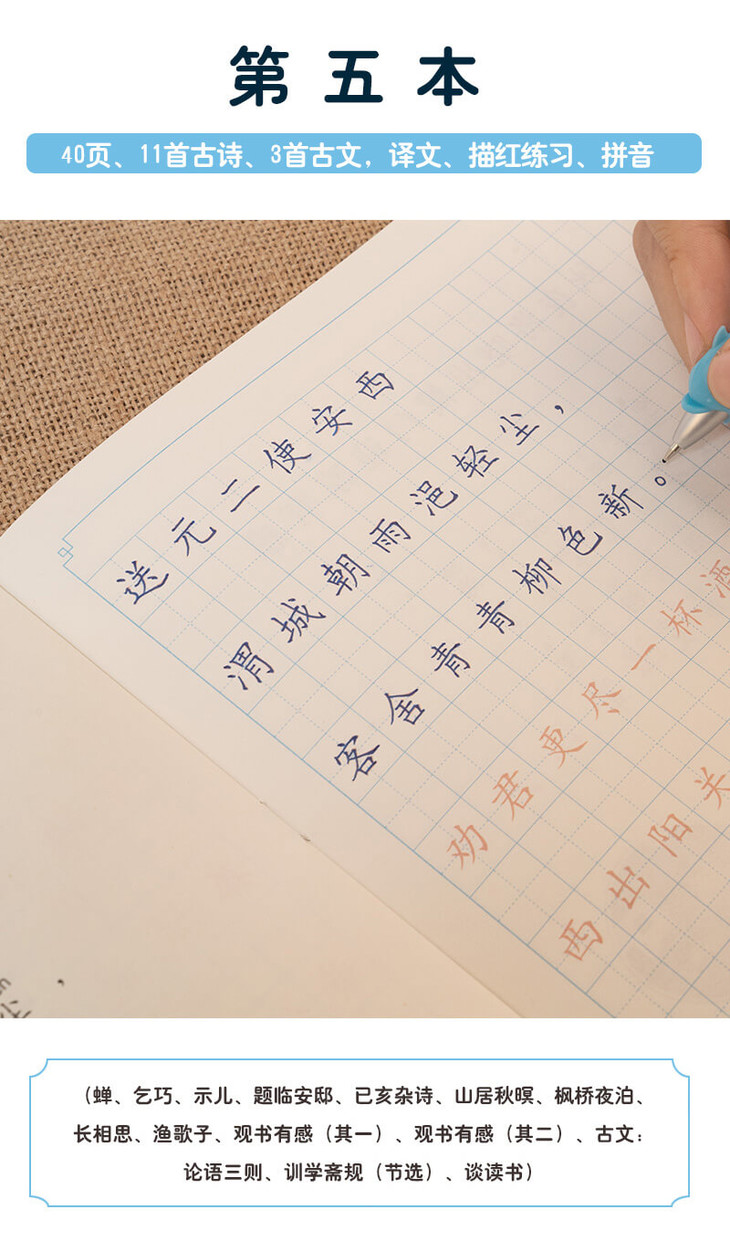 第五本
40页、11首古诗、3首古文，译文、描红练习、拼音
送元二使安西
渭城朝雨浥轻尘，
客舍青青柳色新。
劝君更尽一杯酒
西出阳关
（蝉、乞巧、示儿、题临安邸、已亥杂诗、山居秋暝、枫桥夜泊、
长相思、渔歌子、观书有感（其一）、观书有感（其二）、古文：
论语三则、训学斋规（节选）、谈读书）